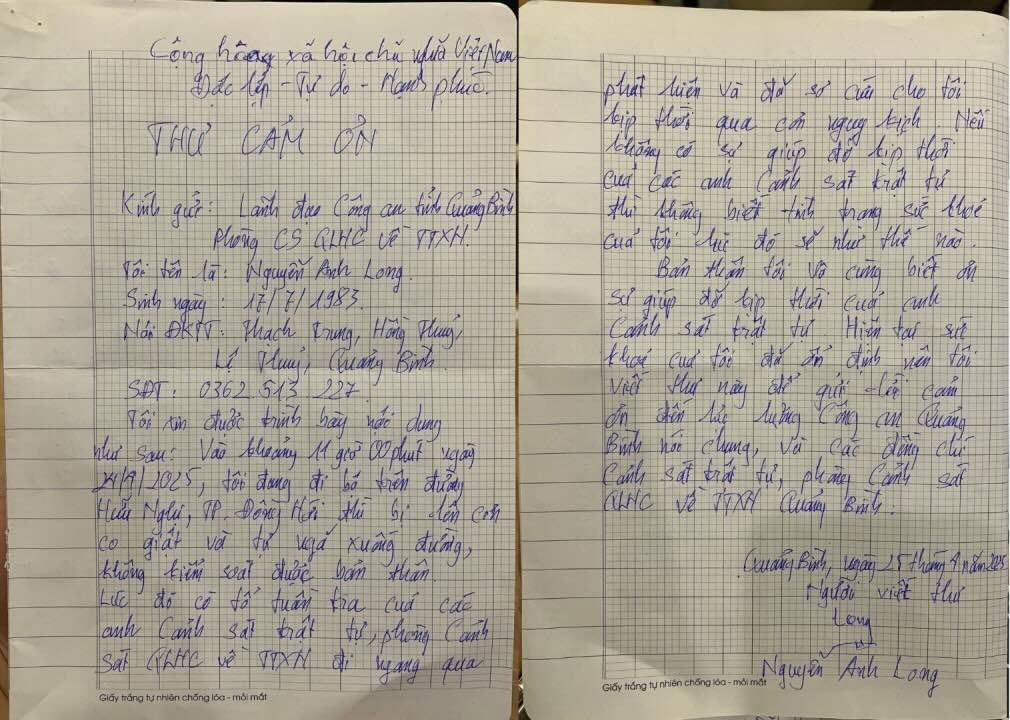 Cộng hòa xã hội chủ nghĩa Việt Nam
Độc lập - Tự do - Hạnh phúc.
THƯ CẢM ƠN
Kính gửi: Lãnh đạo Công an tỉnh Quảng Bình
Phòng CS QLHC về TTXH.
Tôi tên là: Nguyễn Anh Long.
Sinh ngày: 17/7/1983.
Nơi ĐKTT: Thạch Trung, Hồng Thuỷ,
Lệ Thuỷ, Quảng Bình.
SĐT: 0362.513.227.
Tôi xin được trình bày nội dung
như sau: Vào khoảng 11 giờ 00 phút ngày
24/4/2025, tôi đang đi bộ trên đường
Hữu Nghị, TP. Đồng Hới thì bị lên cơn
co giật và tự ngã xuống đường,
không kiểm soát được bản thân.
Lúc đó có tổ tuần tra của các
anh Cảnh sát trật tự, phòng Cảnh
sát QLHC về TTXH đi ngang qua
Giấy trắng tự nhiên chống lóa - mỏi mắt
phát hiện và đã sơ cứu cho tôi
kịp thời qua cơn nguy kịch Nếu
không có sự giúp đỡ kịp thời
của các anh Cảnh sát trật tự
thì không biết tình trạng sức khoẻ
của tôi lúc đó sẽ như thế nào.
Bản thân tôi vô cùng biết ơn
sự giúp đỡ kịp thời của anh
Cảnh sát trật tự Hiện tại sức
khoẻ của tôi đã ổn định nên tôi
viết thư này để gửi lời cảm
ơn đến lực lượng Công an Quảng
Bình nói chung, và các đồng chí
Cảnh sát trật tự, phòng Cảnh sát
QLHC về TTXH Quảng Bình.
Quảng Bình, ngày 25 tháng 4 năm 2025
Người viết thư
Long
Nguyễn Anh Long
Giấy trắng tự nhiên chống lóa - mỏi mắt